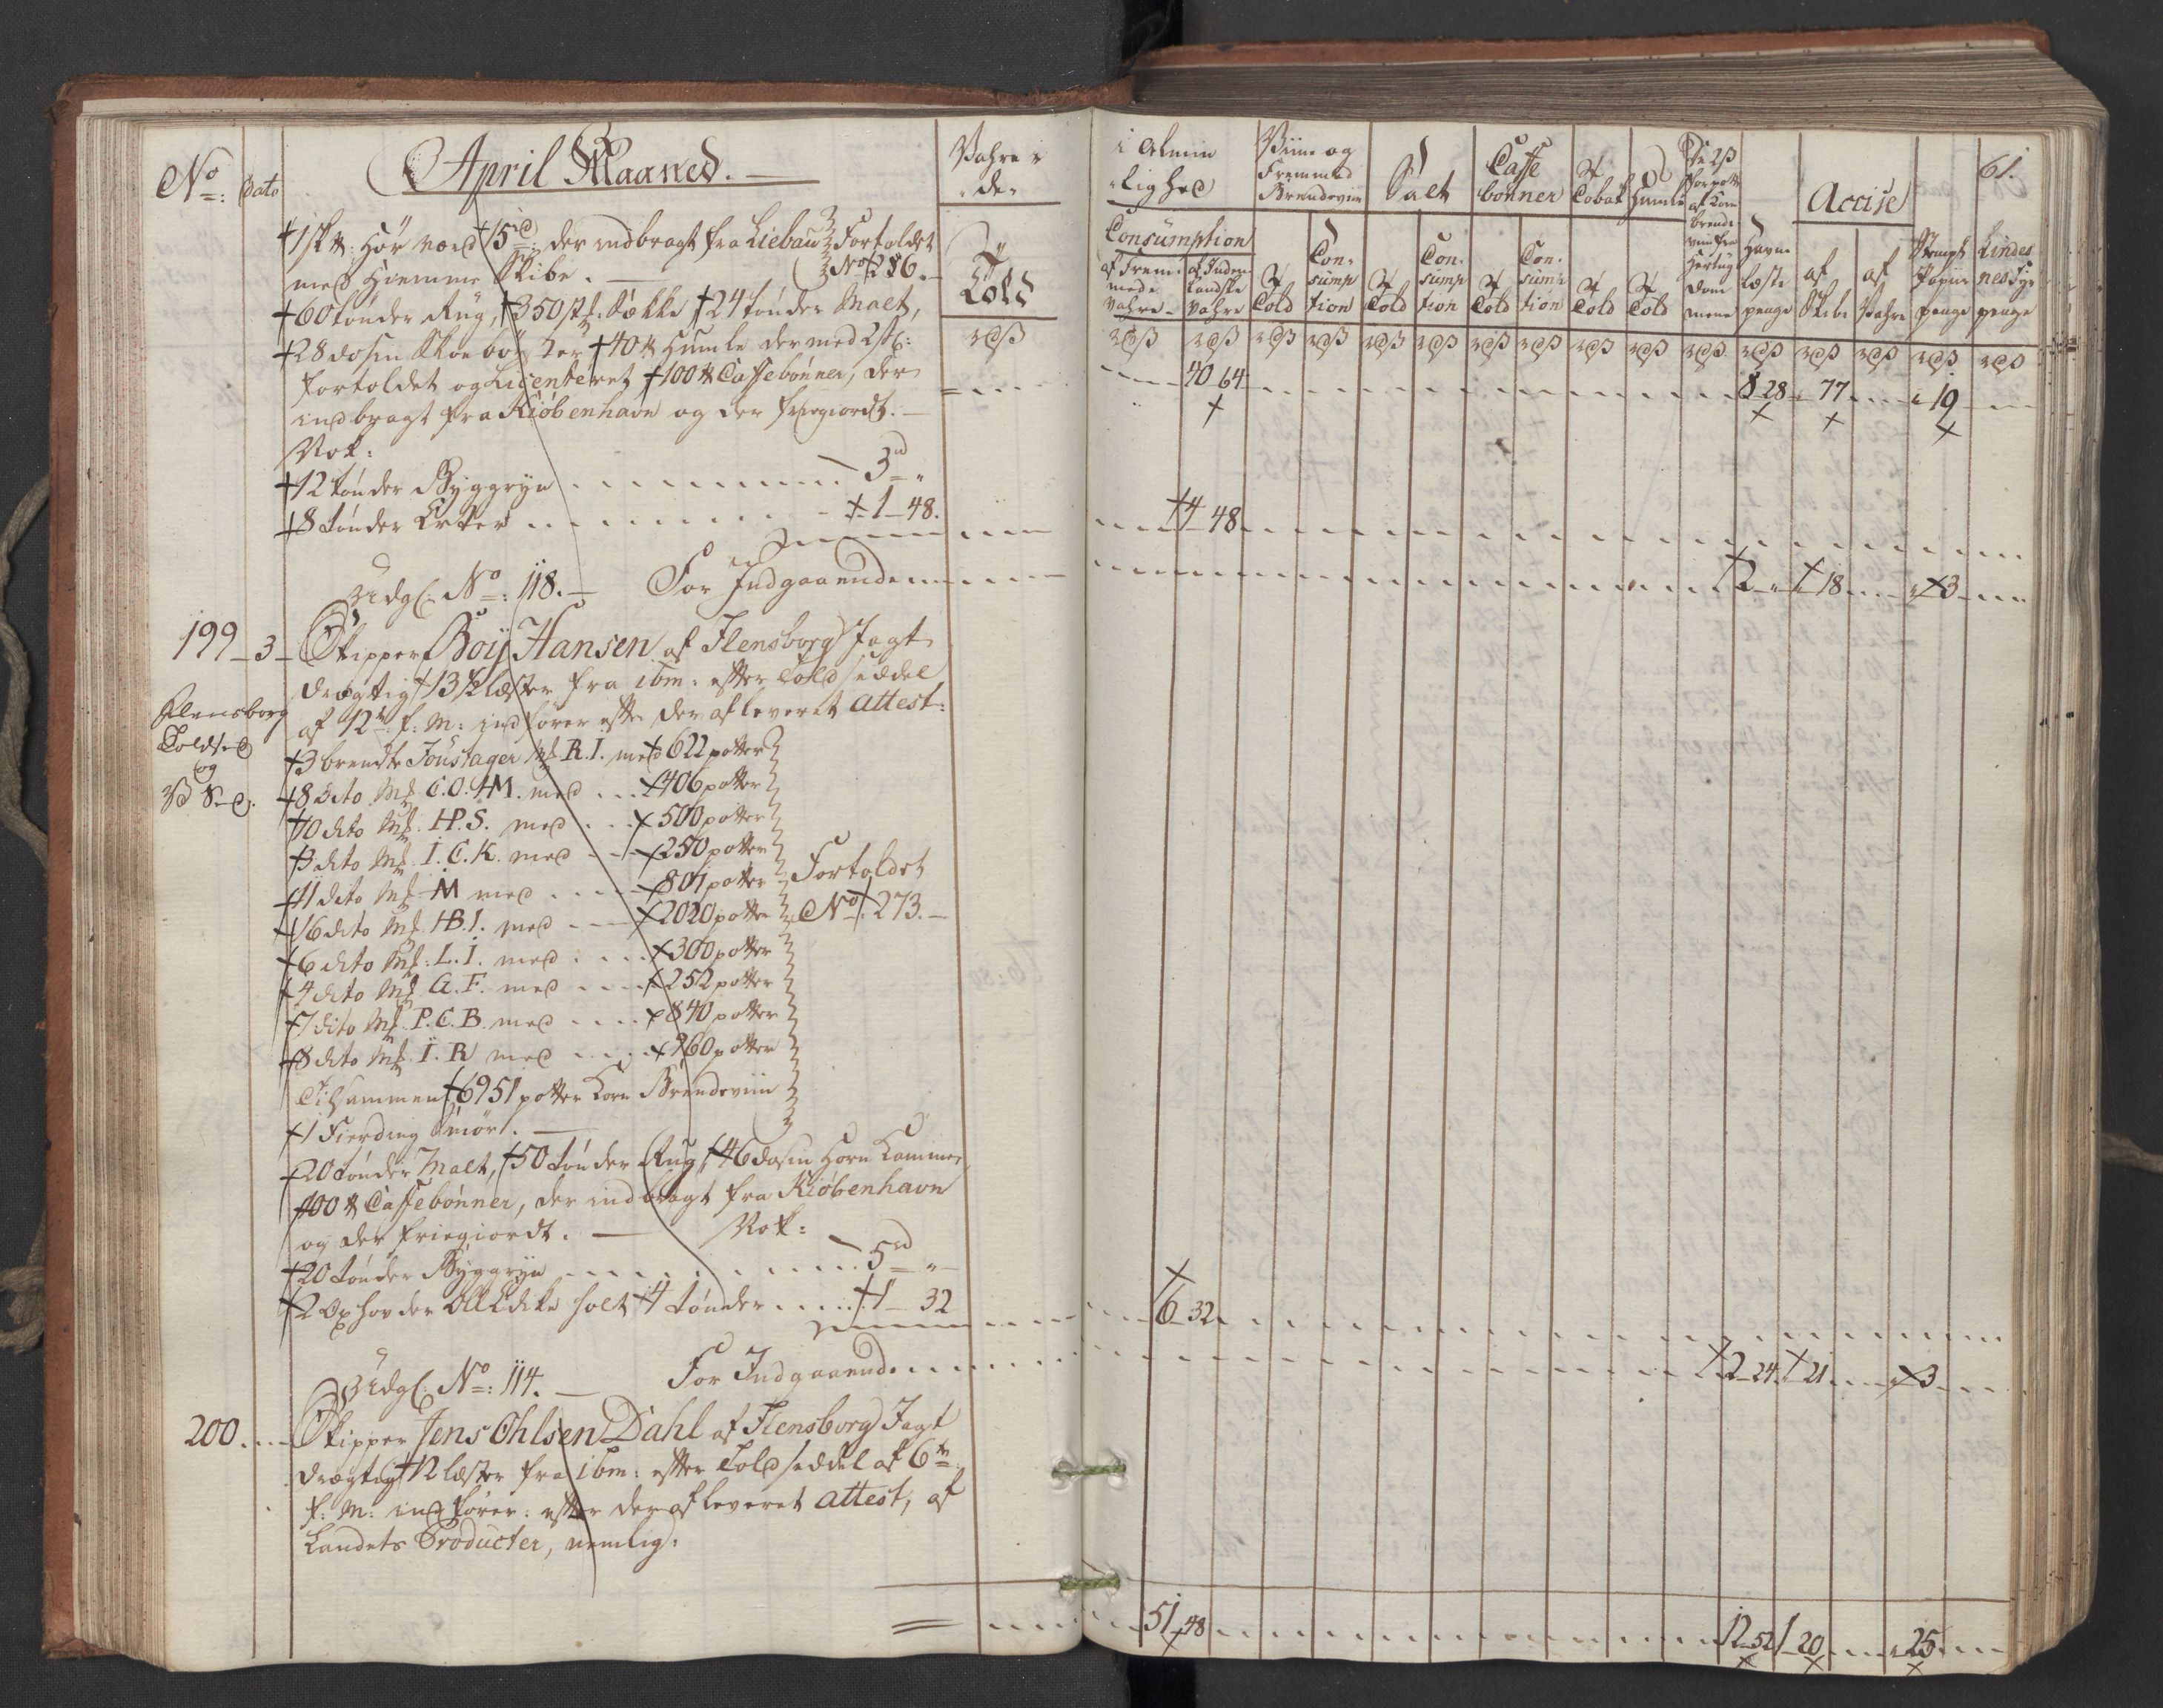 No: Dato April Maaned. Vahre i
de
Told
1 St : Hør værd 15 rd: der indbragt fra Liebau Fortoldet
med Hiemme Skibe. No 286.
60 tønder Rug, 350 st: Sække 24 tønder Malt,
28 dosin 40 Humle der med
fortoldet og Licenteret 100 Caffebønner, der
indbragt fra Kiøbenhavn og der friegiordt.
Nok:
12 tønder Byggryn 3 rd "
8 tønder Erter 1 48.
Udgl: No: 118. For Indgaaende
199 3 Skipper Boij Hansen af Flensborg Jagt
drægtig 13 læster fra ibm: efter Toldseddel
Flensborg af 12te f: M: indfører efter der afleveret Attest:
Toldsed
og 3 brendte Foustager Mk R.I. med 622 potter
8 dito Mk C.O.HM. med 406 potter
10 dito Mk H.P.S. med 500 potter
3 dito Mk I.C.K. med 250 potter
11 dito Mk M med 801 potter Fortoldet
16 dito Mk H.B.I. med 2020 potter No 273.
6 dito Mk: L.I. med 300 potter
4 dito Mk A.F. med 252 potter
7 dito Mk P.C.B. med 840 potter
8 dito Mk I.R med 960 potter
Tilsammen 6951 potter Korn Brendeviin
1 Fierding Smør.
20 tønder Malt, 50 tønder Rug, 46 dosin Horn Kammer
100 Caffebønner, der indbragt fra Kiøbenhavn
og der friegiordt. Nok:
20 tønder Byggryn 5 rd "
2 Oxhovder Øll Edike holt 4 tønder 1 32
Udgl: No: 114. For Indgaaende
200. Skipper Jens Ohlsen Dahl af Flensborg Jagt
drægtig 12 læster fra ibm: efter Toldseddel af 6te
f: M: indfører: efter der afleveret Attest, af
Landets Producter, nemlig:
61.
i Almin
lighed
Viin og
Fremmed
Brendeviin
Salt
Caffe
bønner
Tobak
Humle
Accise
Consumption
af Frem
mede
Vahre
af Inden
landske
Vahre
Told
Con
sump
tion
Told
Con
sump
tion
Told
Con
sump
tion
Told
Told
Havne
læste
penge
af
Skibe
af
Vahre
Stempl
Papiir
penge
Lindes
nes Fyr
penge
40 64 8 28 77 19
4 48
2 " 18 3
6 32
2 24 21 3
51 48 12 52 1 20 25